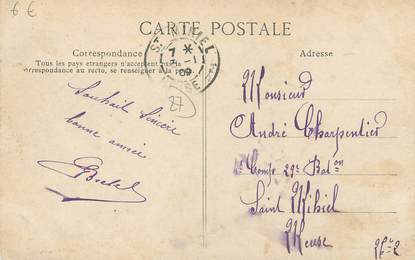 6 €
CARTE POSTALE
Correspondance
Tous les pays étrangers n'acceptent pas la
correspondance au recto, se renseigner à la poste
Adresse
ST MIHIEL
MEUSE
27
Souhait sincère
bonne année
Monsieur
André Charpentier
Comp 29e Bat on
Saint Mihiel
Meuse